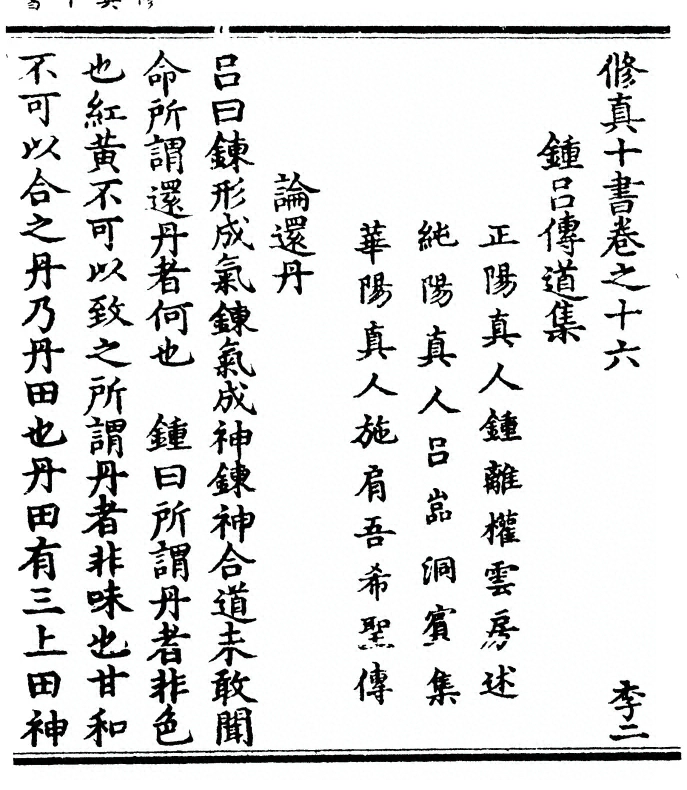 修真十書卷之十六 李二
鍾呂傳道集
正陽真人鍾離權雲房述
純陽真人呂嵓洞賓集
華陽真人施肩吾希聖傳
論還丹
呂曰鍊形成氣鍊氣成神鍊神合道未敢聞
命所謂還丹者何也 鍾曰所謂丹者非色
也紅黃不可以致之所謂丹者非味也甘和
不可以合之丹乃丹田也丹田有三上田神